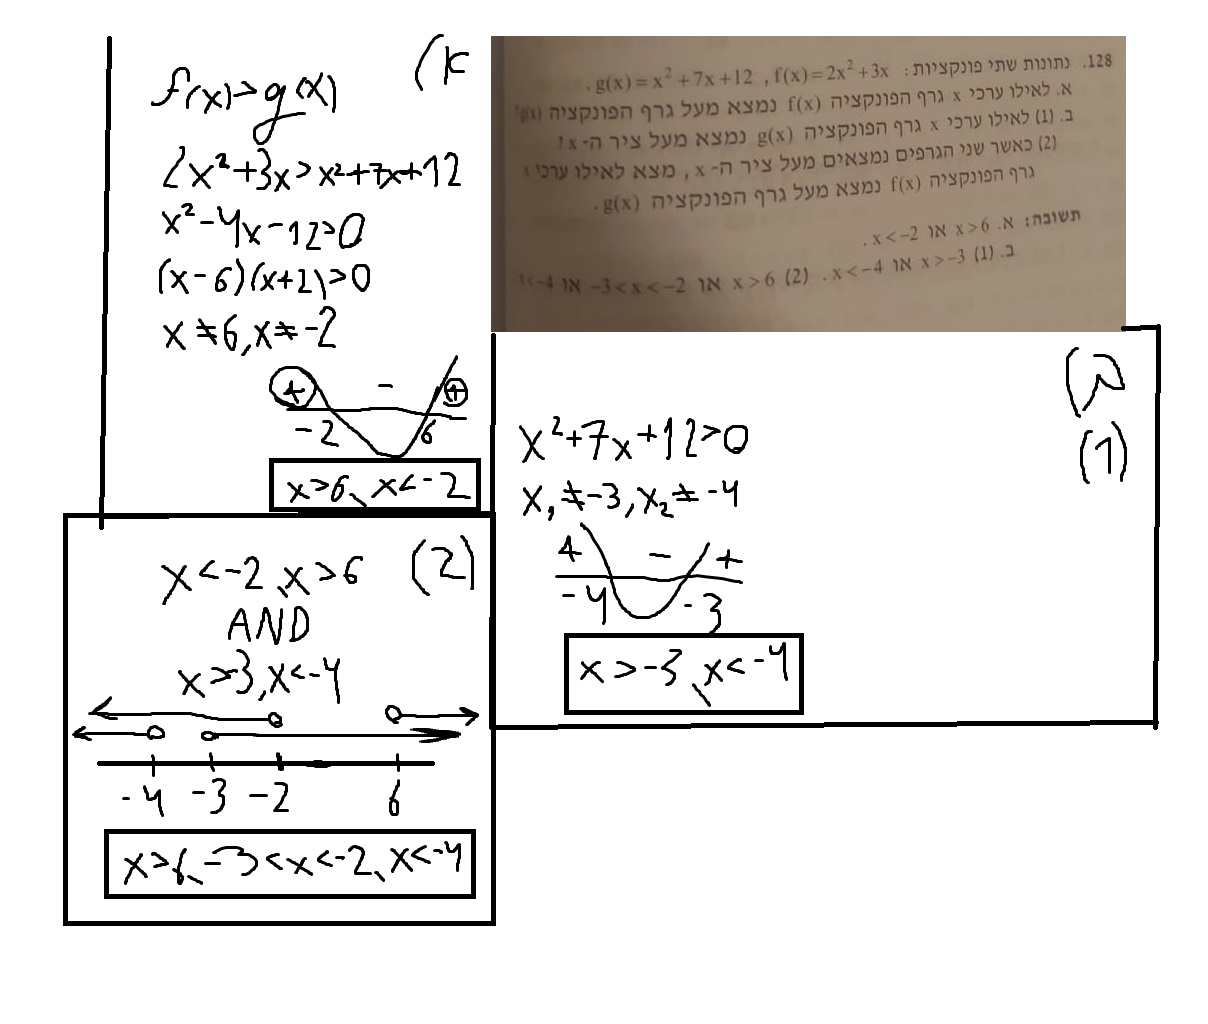 128. נתונות שתי פונקציות: f(x)=2x²+3x , g(x)=x²+7x+12 .
א. לאילו ערכי x גרף הפונקציה f(x) נמצא מעל גרף הפונקציה g(x)?
ב. (1) לאילו ערכי x גרף הפונקציה g(x) נמצא מעל ציר ה- x ?
(2) כאשר שני הגרפים נמצאים מעל ציר ה- x , מצא לאילו ערכי x
גרף הפונקציה f(x) נמצא מעל גרף הפונקציה g(x) .
תשובה: א. x>6 או x<-2 .
ב. (1) x>-3 או x<-4 . (2) x>6 או -3<x<-2 או x<-4
א)
f(x)>g(x)
2x²+3x>x²+7x+12
x²-4x-12>0
(x-6)(x+2)>0
x≠6, x≠-2
+ - +
-2 6
x>6, x<-2
ב)
(1)
x²+7x+12>0
x₁≠-3, x₂≠-4
+ - +
-4 -3
x>-3, x<-4
(2)
x<-2, x>6
AND
x>-3, x<-4
-4 -3 -2 6
x>6, -3<x<-2, x<-4